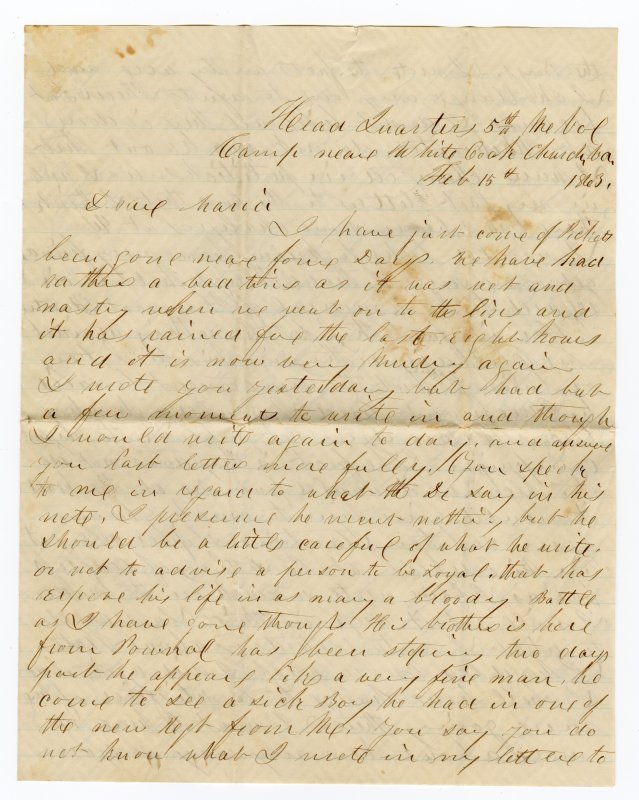 Head Quarters 5th Me Vol
Camp neare White Oak Church, Va.
Feb 15th 1863.
Deare Maria
I have just come of Pickett
been gone neare foure Days. We have had
rather a bad time as it was wet and
nasty when we went on to the lines and
it has rained for the last eight hours
and it is now very Mudy again
I wrote you yesterday but had but
a few moments to write in and though
I would write again to day. and answer
you last letter more fully. You speak
to me in regard to what the Dr say in his
note, I presume he ment nothing but he
should be a little careful of what he write.
or not to advise a person to be Loyal. that has
expose his life in as many a bloody Battle
as I have gone though. His brother is here
from Pownal has been stoping two days
past he appears like a very fine man, he
come to see a sick Boy he had in one of
the new Regt from Me. You say you do
not know what I wrote in my letter to